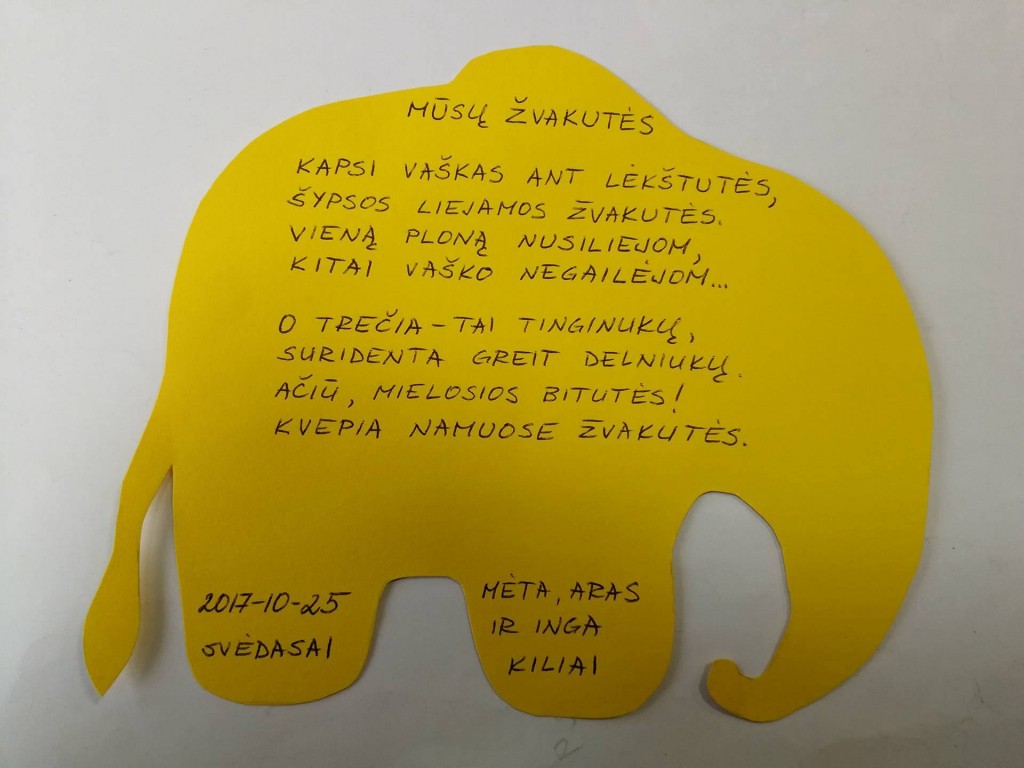 MŪSŲ ŽVAKUTĖS
KAPSI VAŠKAS ANT LĖKŠTUTĖS,
ŠYPSOS LIEJAMOS ŽVAKUTĖS.
VIENĄ PLONĄ NUSILIEJOM,
KITAI VAŠKO NEGAILĖJOM...
O TREČIA - TAI TINGINUKŲ,
SURIDENTA GREIT DELNIUKŲ.
AČIŪ, MIELOSIOS BITUTĖS!
KVEPIA NAMUOSE ŽVAKUTĖS.
2017-10-25
SVĖDASAI
MĖTA, ARAS
IR INGA
KILIAI
2